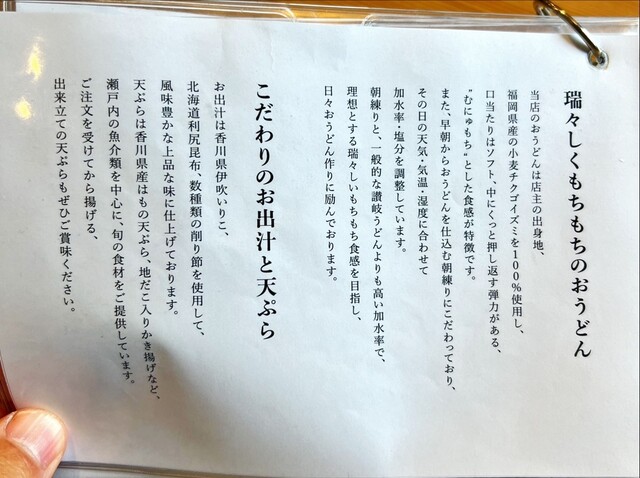 瑞々しくもちもちのおうどん
当店のおうどんは店主の出身地、
福岡県産の小麦チクゴイズミを100%使用し、
口当たりはソフト、中にくっと押し返す弾力がある、
"むにゅもち"とした食感が特徴です。
また、早朝からおうどんを仕込む朝練りにこだわっており、
その日の天気・気温・湿度に合わせて
加水率・塩分を調整しています。
朝練りと、一般的な讃岐うどんよりも高い加水率で、
理想とする瑞々しいもちもち食感を目指し、
日々おうどん作りに励んでおります。
こだわりのお出汁と天ぷら
お出汁は香川県伊吹いりこ、
北海道利尻昆布、数種類の削り節を使用して、
風味豊かな上品な味に仕上げております。
天ぷらは香川県産はもの天ぷら、地だこ入りかき揚げなど、
瀬戸内の魚介類を中心に、旬の食材をご提供しています。
ご注文を受けてから揚げる、
出来立ての天ぷらもぜひご賞味ください。